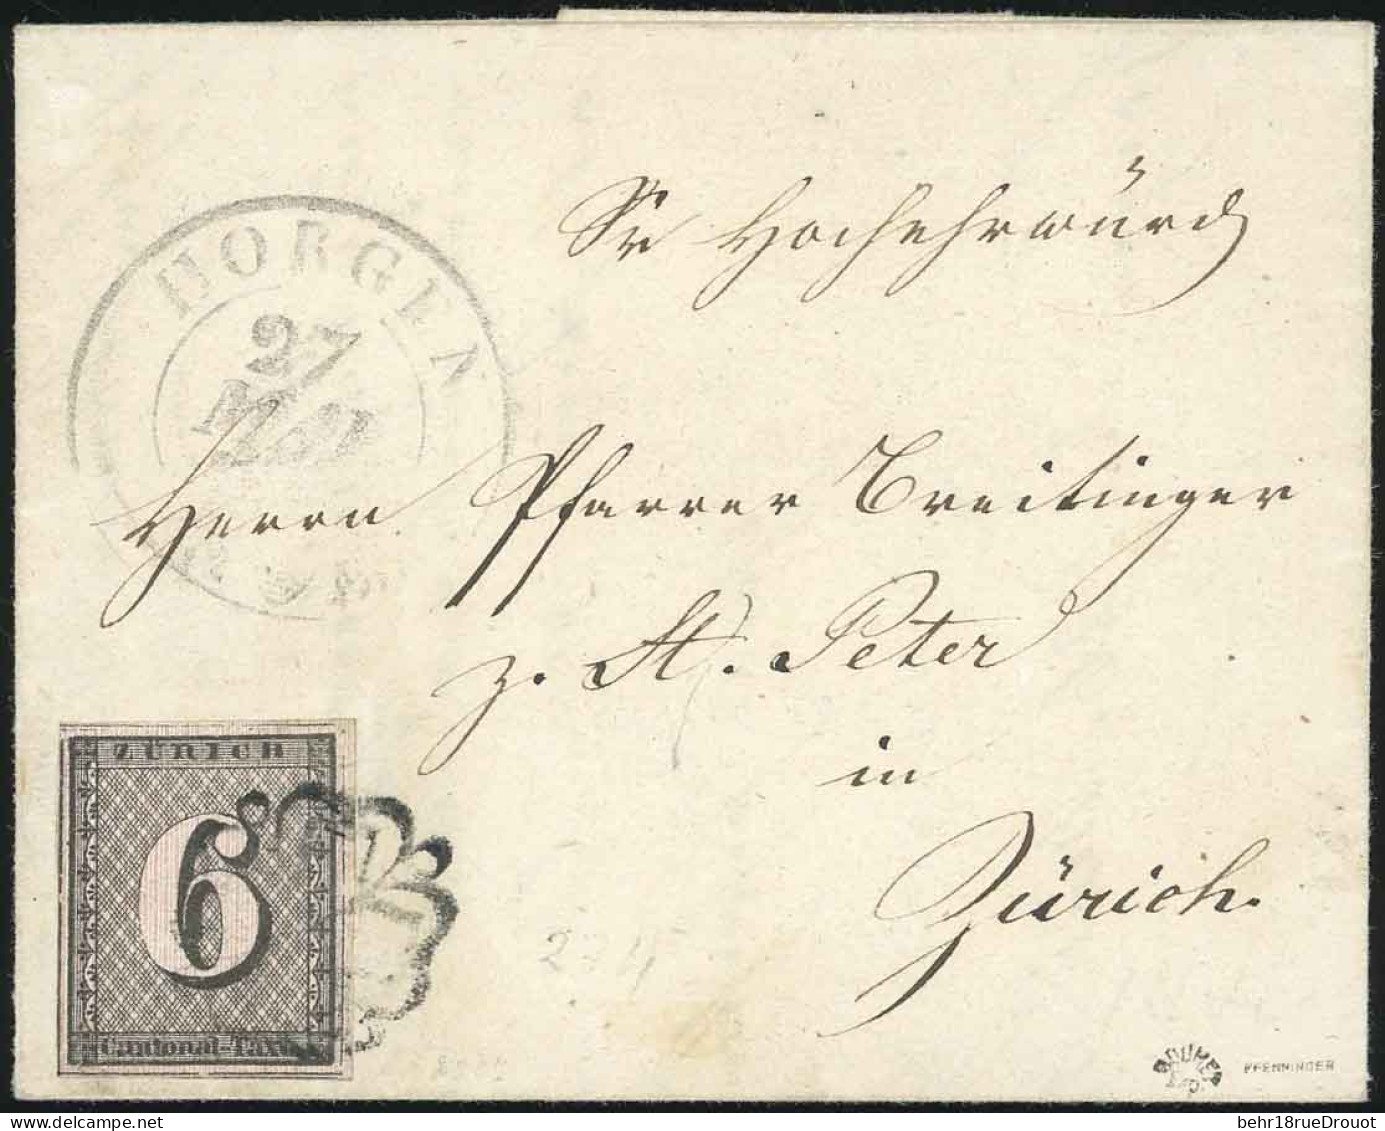 HORGEN
27
MAI
Sr Hochehrwürd
Herrn Pfarrer Breitinger
z. St. Peter
in
Zürich.
ZÜRICH
6
Cantonal-Taxe
PFENNINGER
behr18rueDrouot